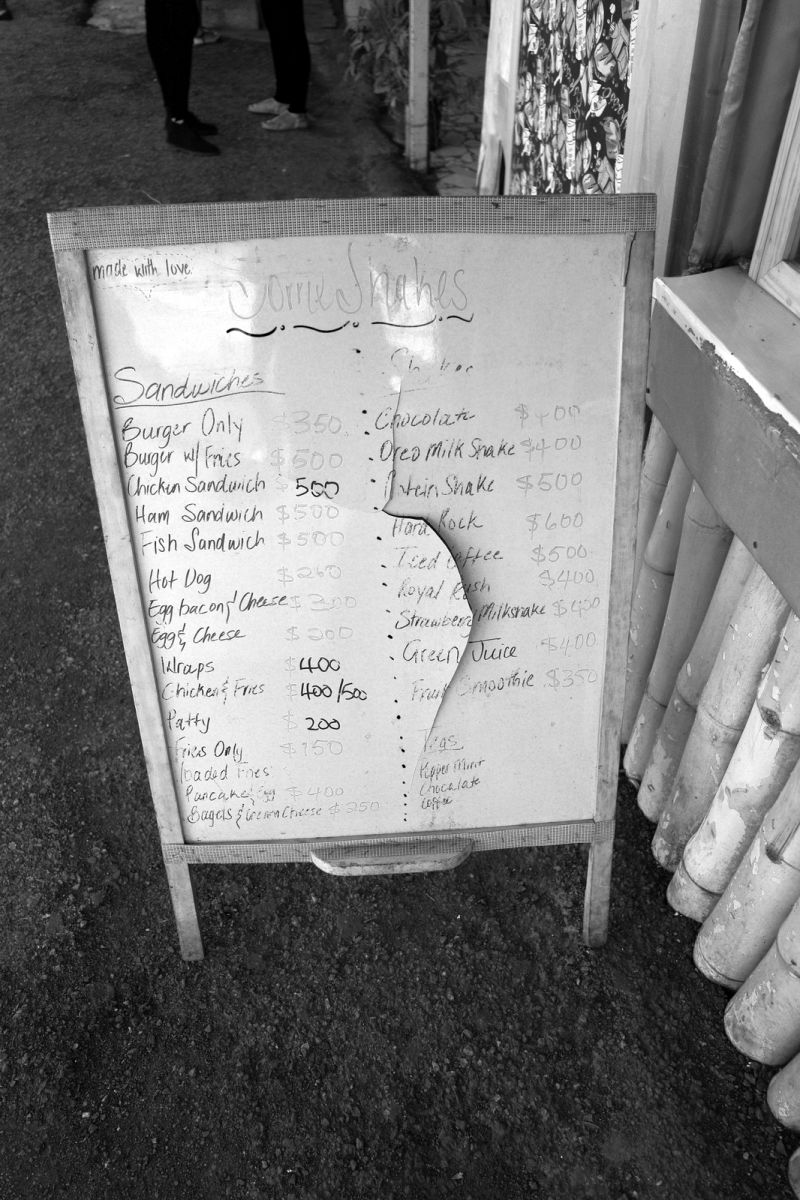 made with love.
Shakes
Sandwiches
Burger Only $350
Burger w/ Fries $500
Chicken Sandwich 500
Ham Sandwich $500
Fish Sandwich $500
Hot Dog $260
Egg bacon & Cheese $300
Egg & Cheese $300
Wraps $400
Chicken & Fries $400/500
Patty $200
Fries Only $150
loaded Fries
Pancake & Egg $400
Bagels & Cream Cheese $350
Shakes
Chocolate $400
Oreo Milk Shake $400
Protein Shake $500
Hard Rock $600
Iced Coffee $500
Royal Rush $400
Strawberry Milkshake $450
Green Juice $400
Fruit Smoothie $350
Teas
Pepper Mint
Chocolate
Coffee